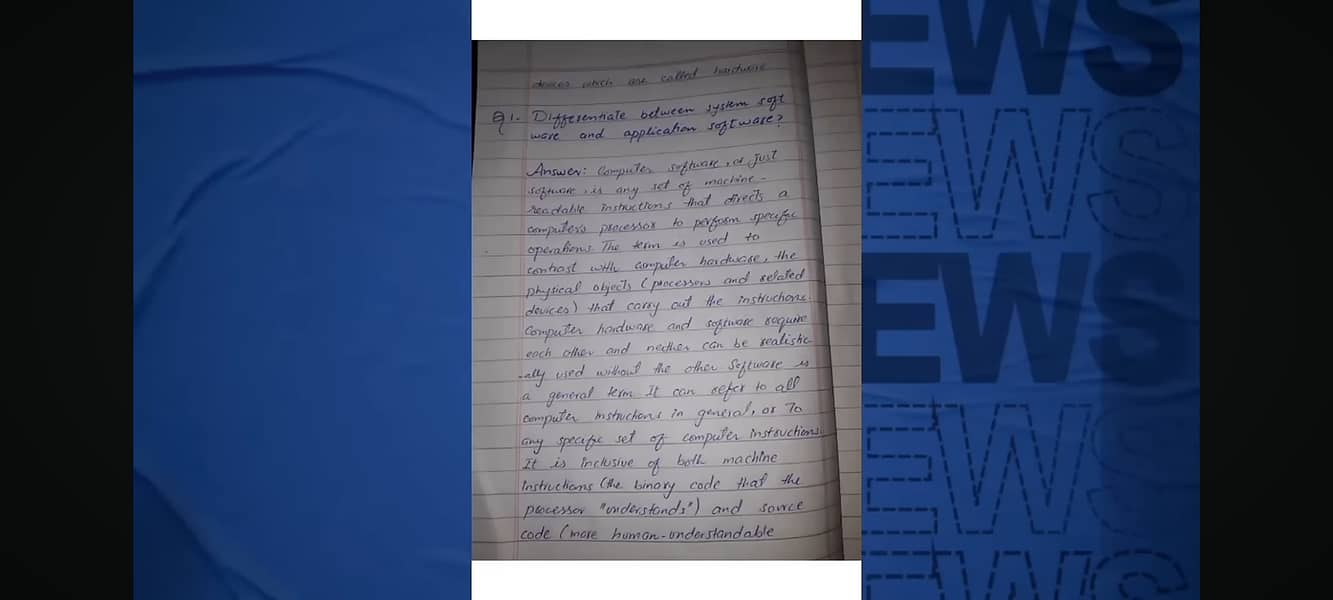 devices which are called hardware
Q1. Differentiate between system soft
ware and application software?
Answer: Computer software, or just
software, is any set of machine-
readable instructions that directs a
computer's processor to perform specific
operations. The term is used to
contrast with computer hardware, the
physical objects (processors and related
devices) that carry out the instructions.
Computer hardware and software require
each other and neither can be realistic
-ally used without the other Software is
a general term It can refer to all
computer instructions in general, or To
any specific set of computer instructions.
It is inclusive of both machine
instructions (the binary code that the
processor "understands") and source
code (more human-understandable
EWS
EWS
EWS
EWS
EWS